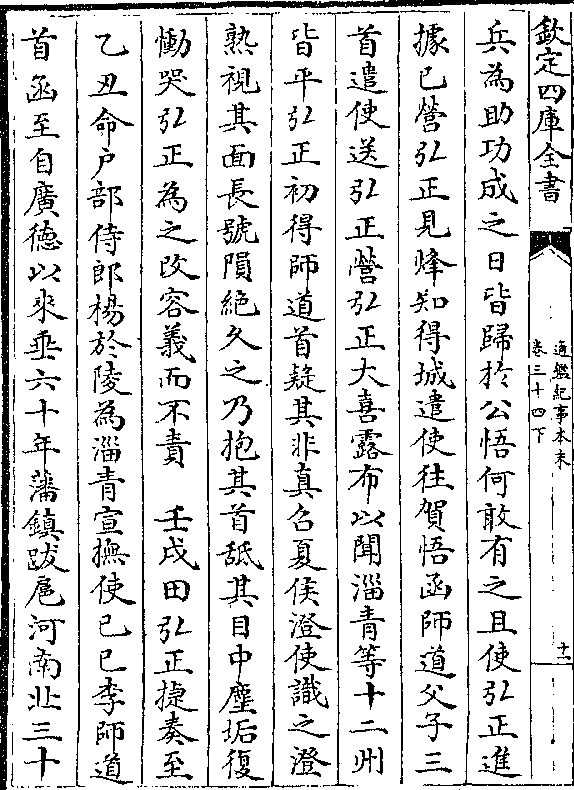 欽定四庫全書
通鑑紀事本末
卷三十四下
十二
兵為助功成之日皆歸於公悟何敢有之且使弘正進
據已營弘正見烽知得城遣使往賀悟函師道父子三
首遣使送弘正營弘正大喜露布以聞淄青等十二州
皆平弘正初得師道首疑其非真召夏侯澄使識之澄
熟視其面長號隕絶久之乃抱其首舐其目中塵垢復
慟哭弘正為之改容義而不責　壬戌田弘正捷奏至
乙丑命户部侍郎楊於陵為淄青宣撫使已巳李師道
首函至自廣德以來垂六十年藩鎮跋扈河南北三十